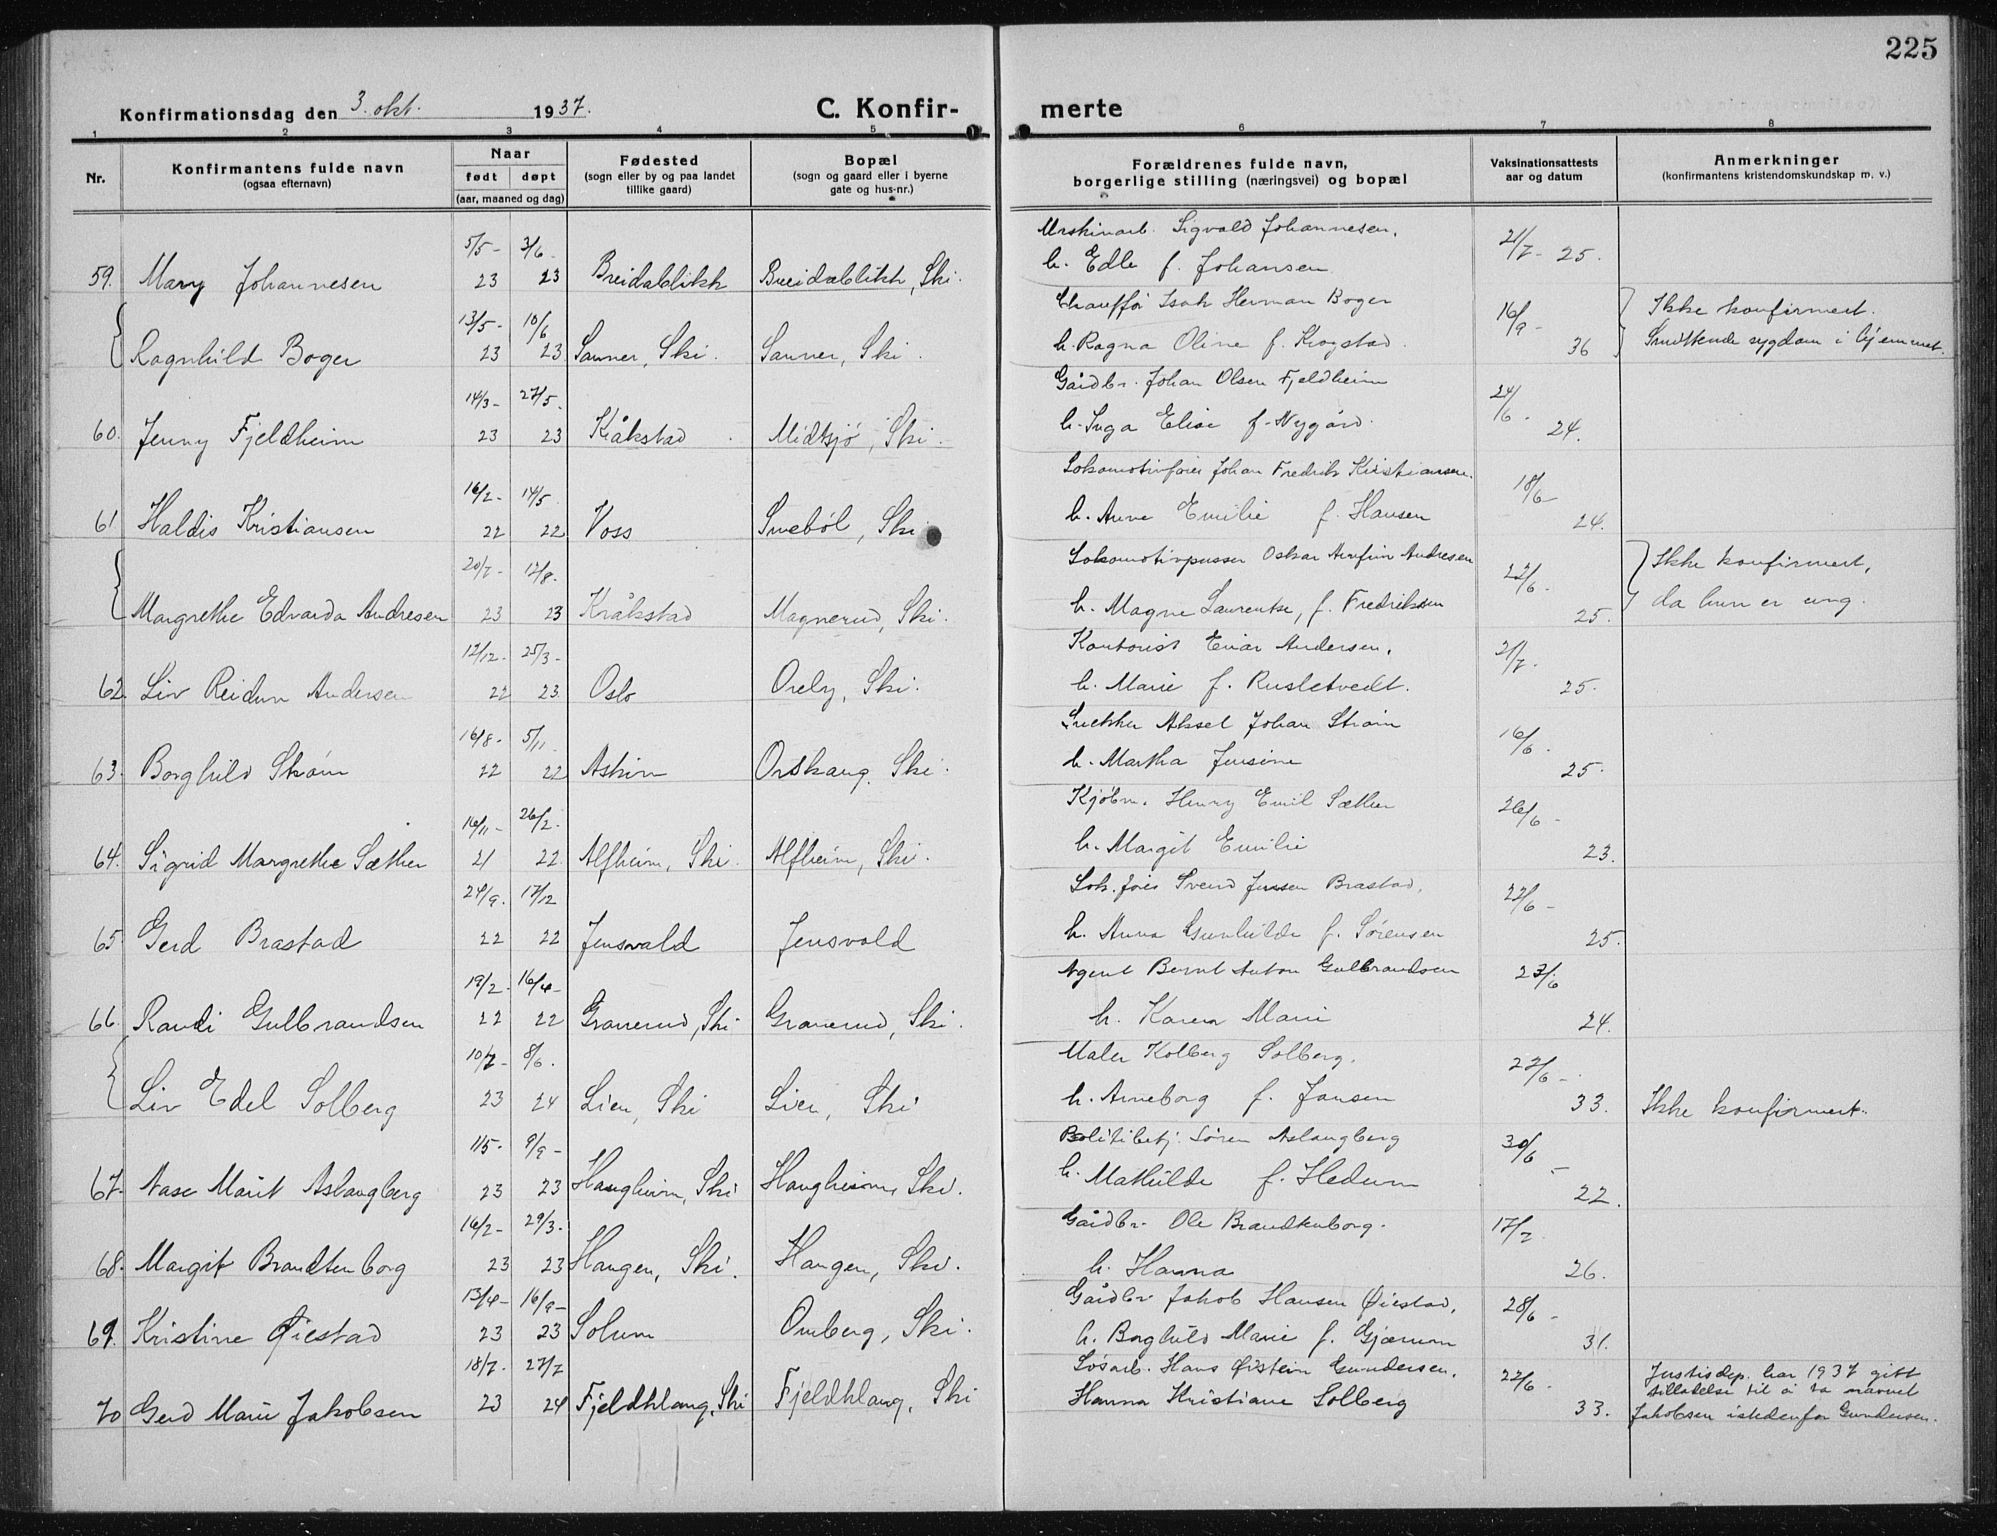 225
Konfirmationsdag den 3. okt. 1937. C. Konfir- merte
1 2 3 4 5 6 7 8
Nr. Konfirmantens fulde navn (ogsaa efternavn) Naar født døpt (aar, maaned og dag) Fødested (sogn eller by og paa landet tillike gaard) Bopæl (sogn og gaard eller i byerne gate og hus-nr.) Forældrenes fulde navn, borgerlige stilling (næringsvei) og bopæl Vaksinationsattests aar og datum Anmerkninger (konfirmantens kristendomskundskap m. v.)
5/5- 3/6- Sigvald Johannesen, 21/7-
59. Mary Johannesen 23 23 Breidablikk Breidablikk, Ski. h. Edle f. Johansen 25.
13/5- 10/6 Isak Herman Boger 16/9- Ikke konfirmert.
Ragnhild Boger 23 23 Sanner, Ski. Sanner, Ski. h. Ragna Oline f. Krogstad. 36 Smittende sygdom i hjemmet.
14/3- 27/5. Gårdbr. Johan Olsen Fjeldheim 24/6-
60. Jenny Fjeldheim 23 23 Kråkstad Midtsjø, Ski. h. Inga Elise f. Nygård. 24.
16/2- 14/5. Johan Fredrik Kristiansen 18/6-
61 Haldis Kristiansen 22 22 Voss Smebøl, Ski h. Anne Emilie f. Hansen 24.
20/7- 12/8. Lokomotivpusser Oskar Arnfin Andresen 22/6- Ikke konfirmert,
Margrethe Edvarda Andresen 23 23 Kråkstad Magnerud, Ski. h. Magne Laurentse, f. Fredriksen 25. da hun er ung.
12/12- 25/3- Kontorist Einar Andersen, 21/7.
62 Liv Reidun Andersen 22 23 Oslo Oreby, Ski. h. Marie f. Rusletvedt. 25.
16/8- 5/11. Snekker Aksel Johan Strøm 16/6.
63. Borghild Strøm 22 22 Askim Orskaug, Ski. h. Martha Jensine 25.
16/11- 26/2. Kjøbm. Henry Emil Sæther 26/6-
64. Sigrid Margrethe Sæther 21 22 Alfheim, Ski. Alfheim, Ski. h. Margit Emilie 23.
24/9. 17/12 Svend Jensen Brastad, 22/6-
65 Gerd Brastad 22 22 Jensvold Jensvold h. Anna Gunhilde f. Sørensen 25.
19/2- 16/4- Agent Bernt Anton Gulbrandsen 23/6
66. Randi Gulbrandsen 22 22 Granerud, Ski Granerud, Ski. h. Karen Marie 24.
10/7- 8/6. Maler Kolberg Solberg. 22/6-
Liv Edel Solberg 23 24 Lien, Ski Lien, Ski h. Anneborg f. Jansen 33. Ikke konfirmert.
1/5- 9/9- Politibetj. Søren Aslangberg 30/6-
67. Aase Marit Aslangberg 23 23 Haugheim, Ski Haugheim, Ski. h. Mathilde f. Hedum 22.
16/2- 29/3- Gårdbr. Ole Brandtenborg. 17/7
68. Margit Brandtenborg 23 23 Haugen, Ski. Haugen, Ski. h. Hanna 26.
13/4- 16/9- Gårdbr Jakob Hansen Øiestad, 28/6-
69. Kristine Øiestad 23 23 Solum Omberg, Ski. h. Borghild Marie f. Gjærum 31.
18/7. 27/7 Hans Øistein Gundersen, 22/6- Justisdep. har 1937 gitt
70 Gerd Marie Jakobsen 23 24 Fjeldklang, Ski Fjeldklang, Ski Hanna Kristiane Solberg 33. tillatelse til å ta navnet
Jakobsen istedenfor Gundersen.